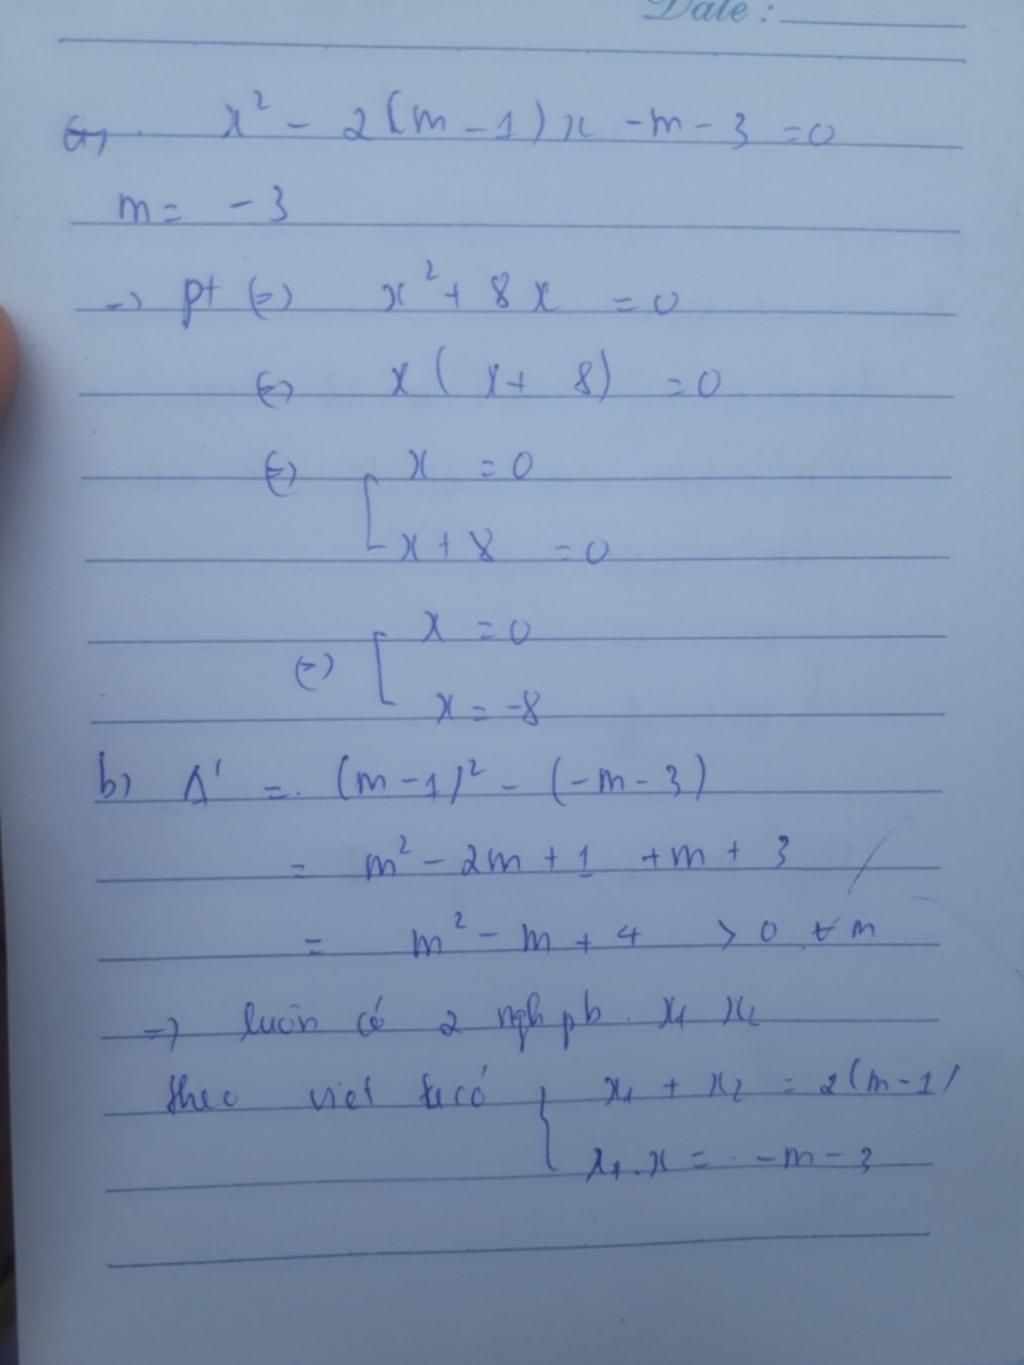 Date:
a) x² - 2(m - 1)x - m - 3 = 0
m = - 3
=> pt (=) x² + 8x = 0
(=) x(x + 8) = 0
(=) [ x = 0
x + 8 = 0
(=) [ x = 0
x = -8
b) Δ' = (m - 1)² - (-m - 3)
= m² - 2m + 1 + m + 3
= m² - m + 4 > 0 ∀ m
=> luôn có 2 ngh pb x₁ x₂
theo viet ta có { x₁ + x₂ = 2(m - 1)
x₁.x = -m - 3